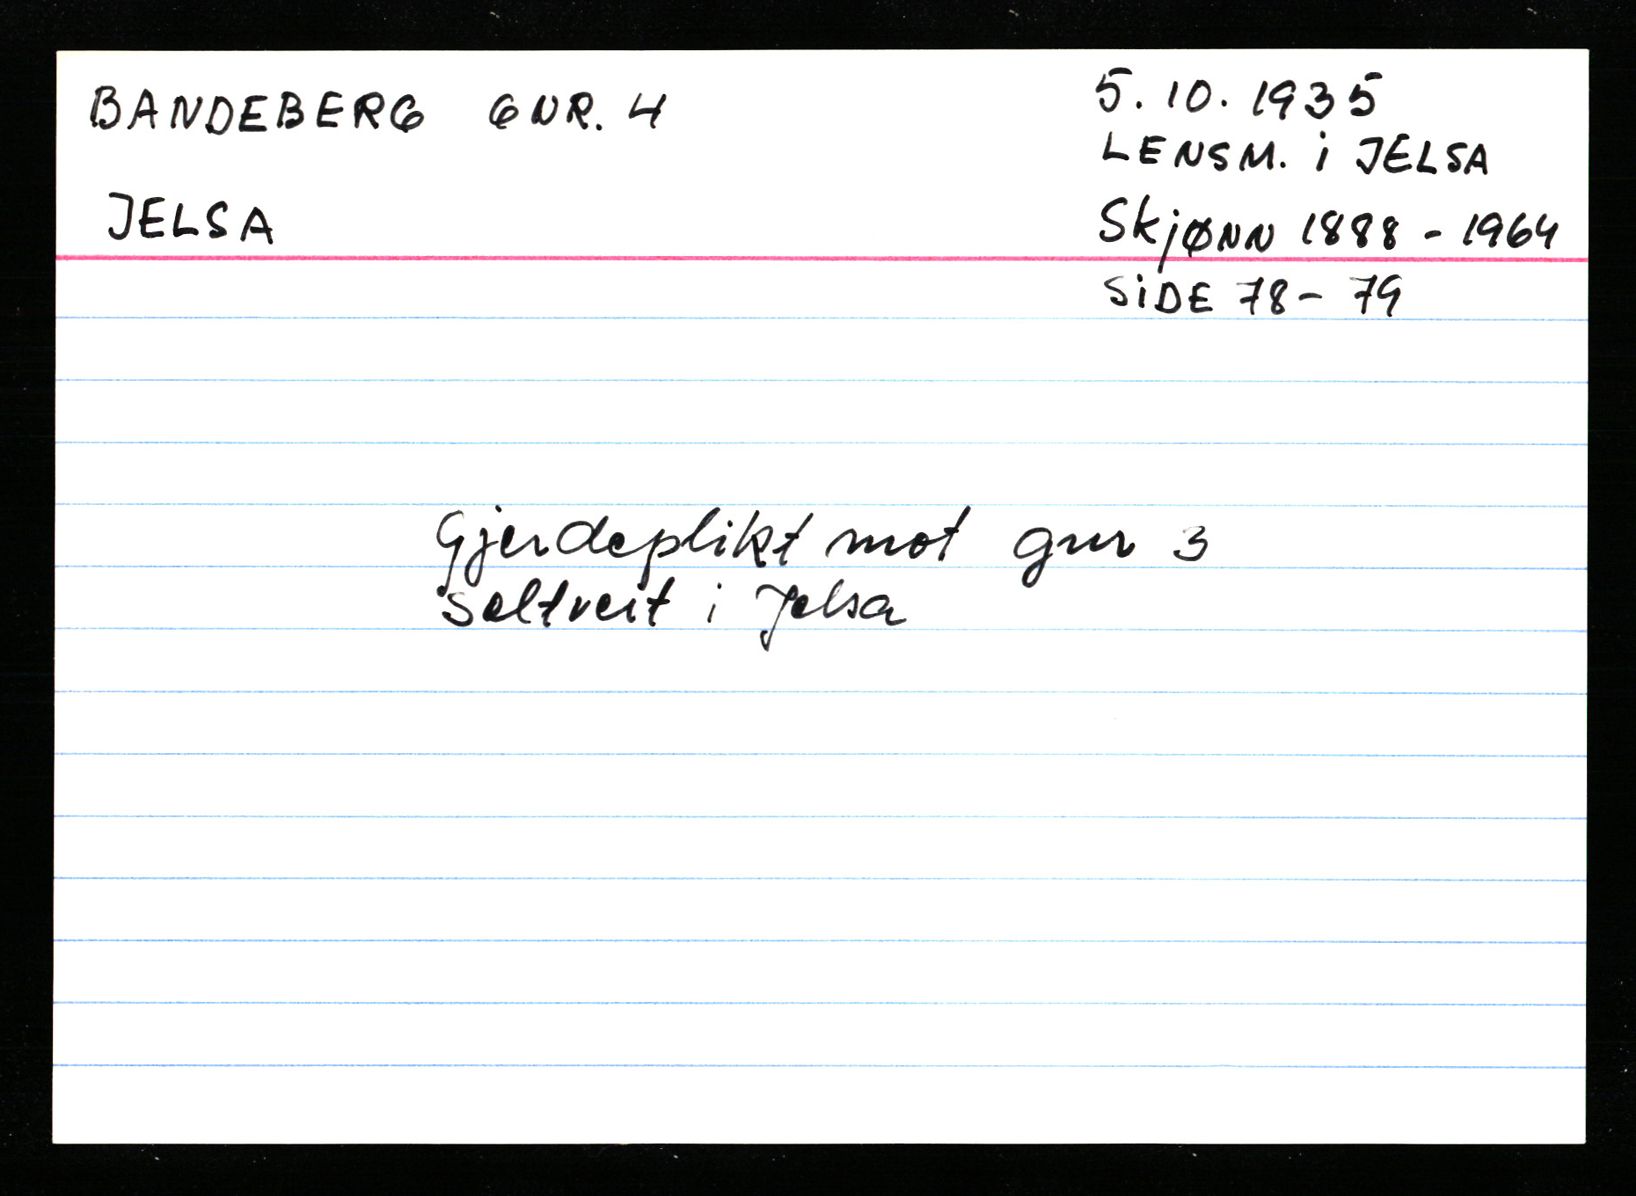 BANDEBERG GNR. 4
JELSA
5.10.1935
LENSM. i JELSA
SkjØNN 1888 - 1964
SiDE 78 - 79
Gjerdeplikt mot gnr 3
Saltveit i Jelsa